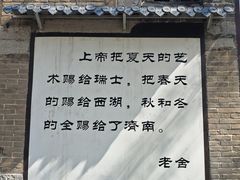 上帝把夏天的艺
术赐给瑞士，把春天
的赐给西湖，秋和冬
的全赐给了濟南。
老舍